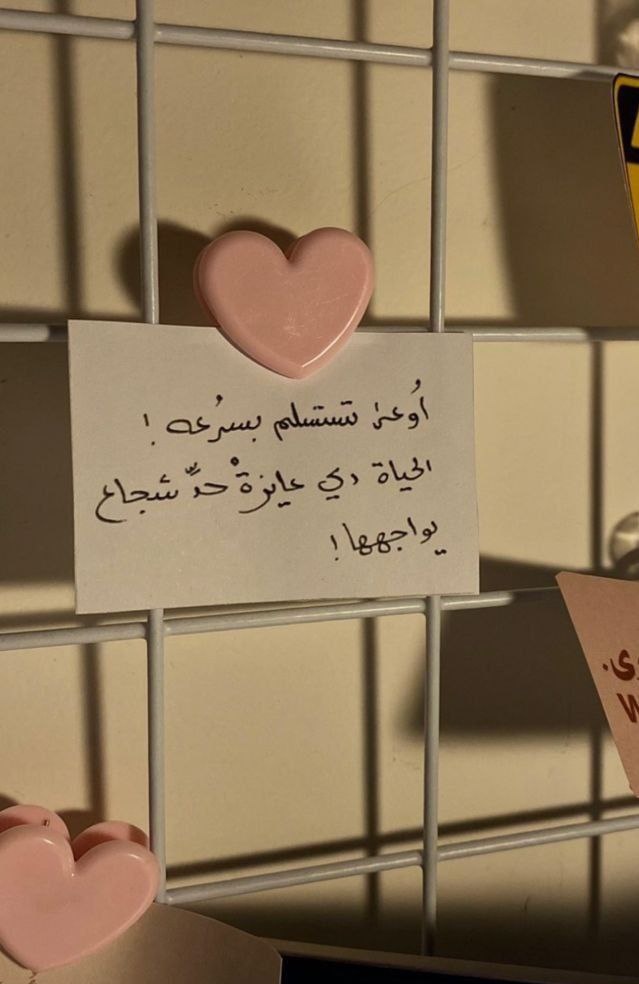 أُوعىٰ تستسلم بسرُعه !
الحياة دي عايزةْ حدٍّ شجاع
يواجهها !
وى.
W